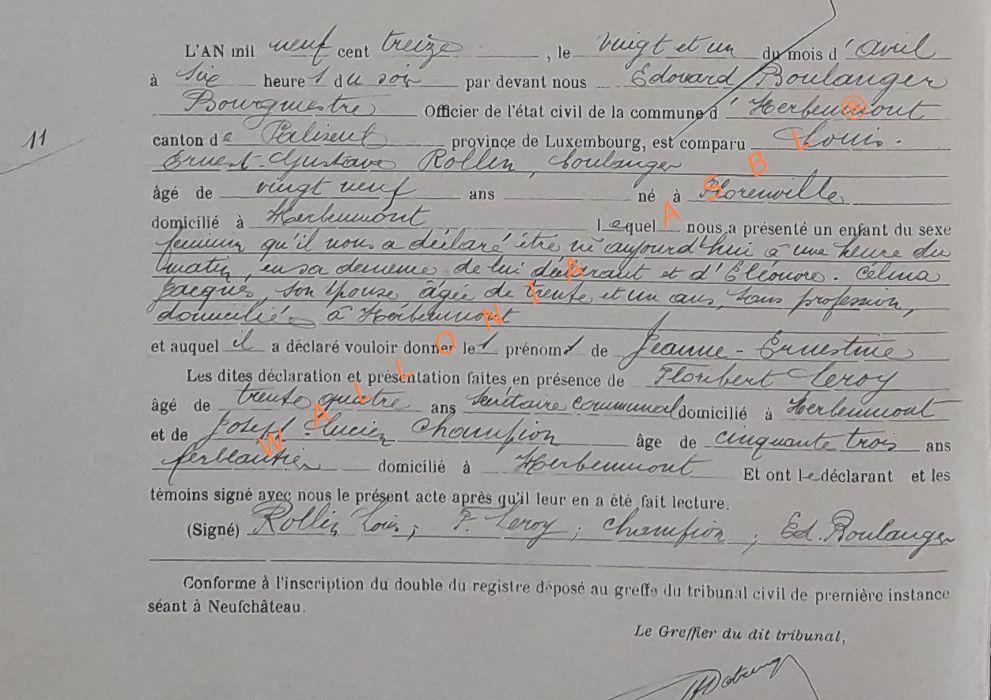 L'AN mil neuf cent treize, le vingt et un du mois d'avril
à six heures du soir par devant nous Edouard Boulanger
Bourgmestre Officier de l'état civil de la commune d'Herbeumont
11 canton de Paliseul province de Luxembourg, est comparu Louis-
Ernest-Gustave Rollin, boulanger
âgé de vingt neuf ans né à Florenville
domicilié à Herbeumont lequel nous a présenté un enfant du sexe
féminin qu'il nous a déclaré être né aujourd'hui à une heure du
matin, en sa demeure de lui déclarant et d'Eléonore-Célina
Jacques, son épouse âgée de trente et un ans, sans profession,
domiciliée à Herbeumont
et auquel il a déclaré vouloir donner les prénoms de Jeanne-Ernestine
Les dites déclaration et présentation faites en présence de Floribert Leroy
âgé de trente quatre ans secrétaire communal domicilié à Herbeumont
et de Joseph-Lucien Champion âgé de cinquante trois ans
ferblantier domicilié à Herbeumont Et ont le déclarant et les
témoins signé avec nous le présent acte après qu'il leur en a été fait lecture.
(Signé) Rollin Louis, F. Leroy, Champion, Ed. Boulanger
Conforme à l'inscription du double du registre déposé au greffe du tribunal civil de première instance
séant à Neufchâteau.
Le Greffier du dit tribunal,
WALLONIA ASBL ®